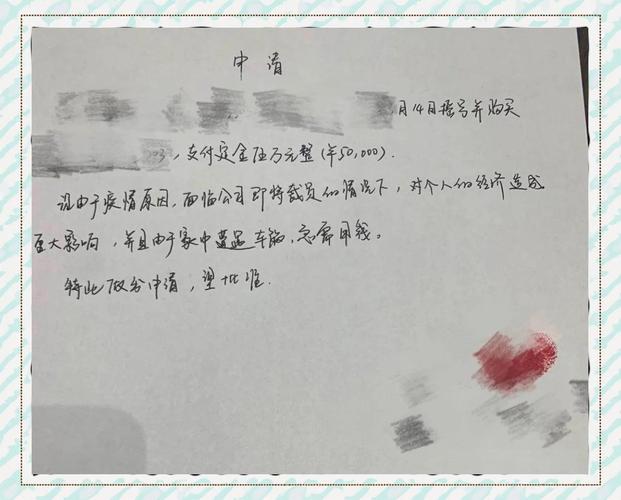 申请
月14日摇号并购买
，支付定金伍万元整(¥50,000).
现由于疫情原因，面临公司即将裁员的情况下，对个人的经济造成
巨大影响，并且由于家中遭遇车祸，急需用钱。
特此做出申请，望批准.